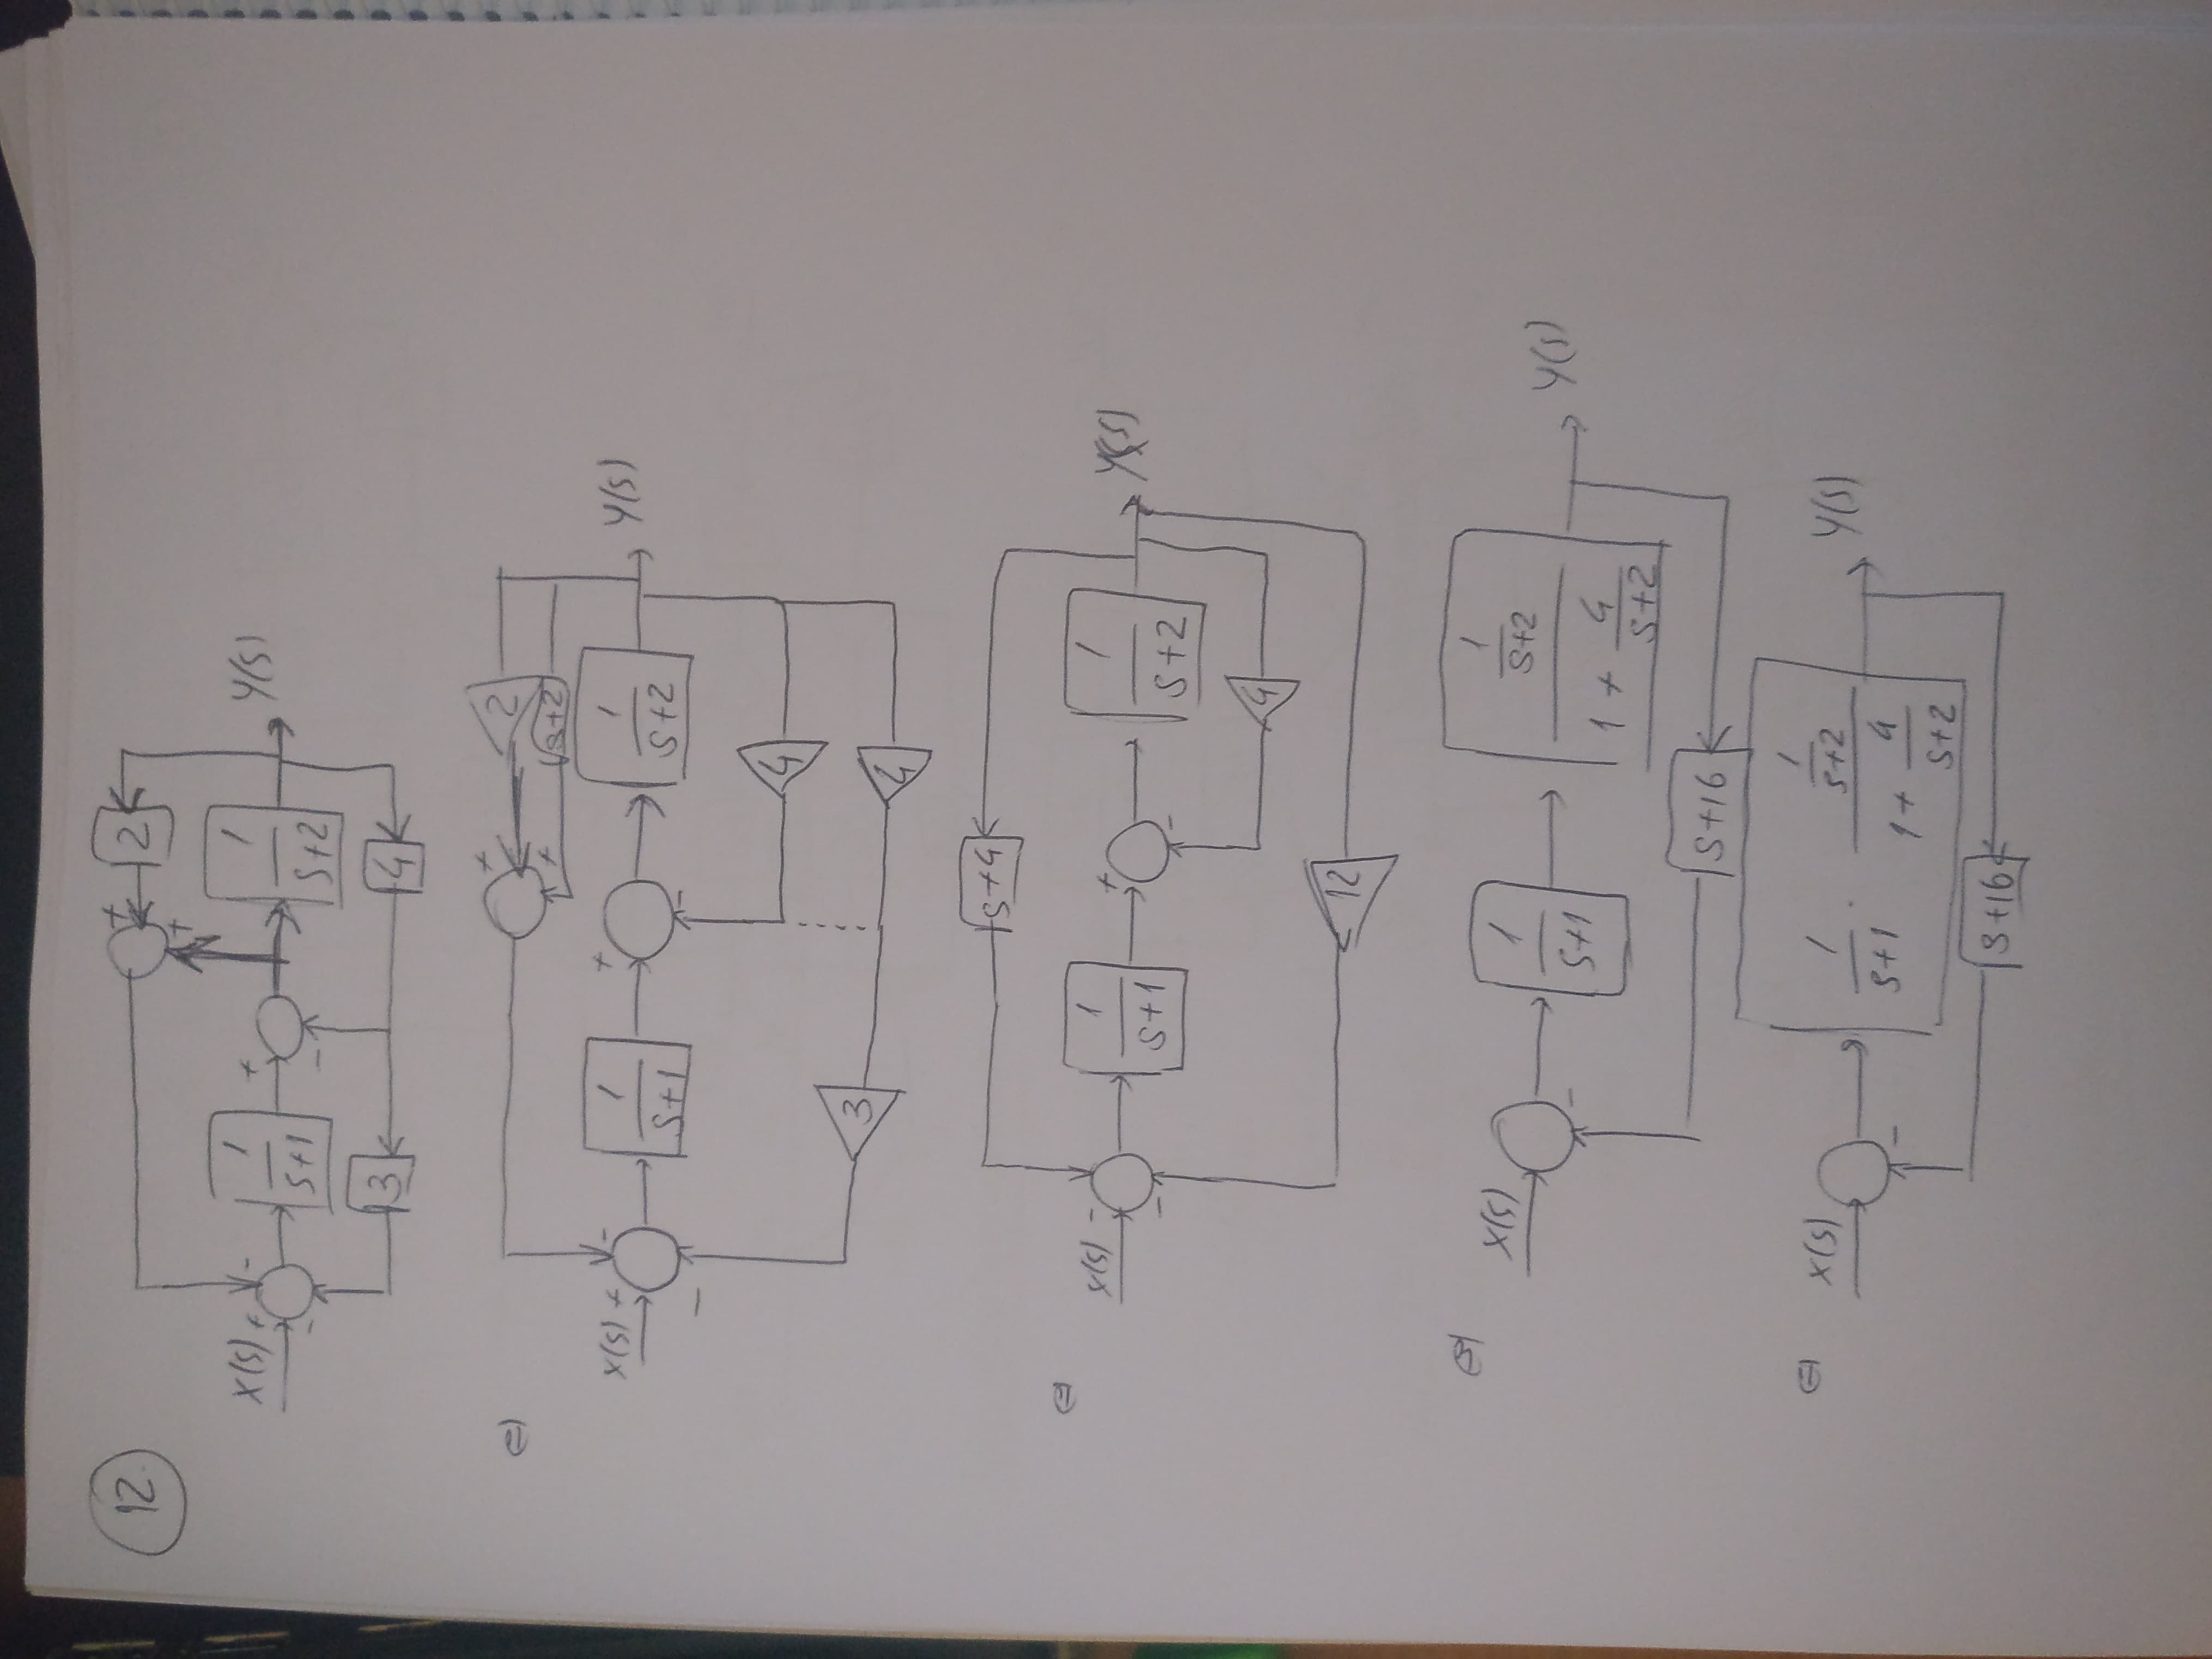 12
+ 2
+
X(s) + - 1/(s+1) + 1/(s+2) Y(s)
- -
3 4
⇔ + 2
+ s+2
X(s) + - 1/(s+1) + 1/(s+2) Y(s)
- -
4
3 4
s+4
⇔ X(s) - 1/(s+1) + 1/(s+2) Y(s)
- -
4
12
⇔ X(s) 1/(s+1) (1/(s+2))/(1 + 4/(s+2)) Y(s)
-
s+16
⇔ X(s) 1/(s+1) · (1/(s+2))/(1 + 4/(s+2)) Y(s)
-
s+16